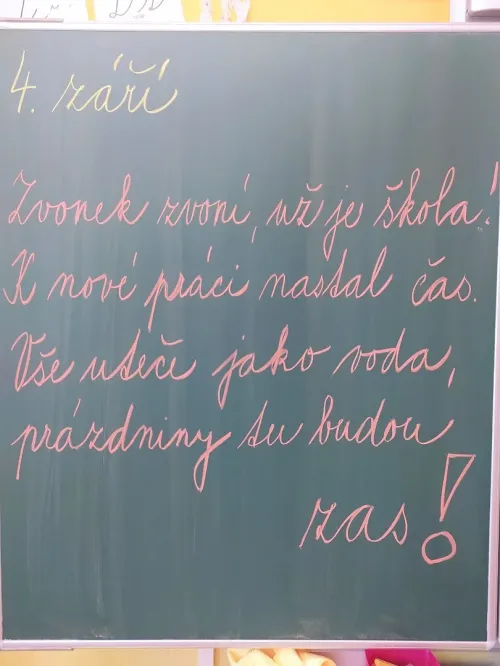 4. září
Zvonek zvoní, už je škola!
K nové práci nastal čas.
Vše uteče jako voda,
prázdniny tu budou
zas!